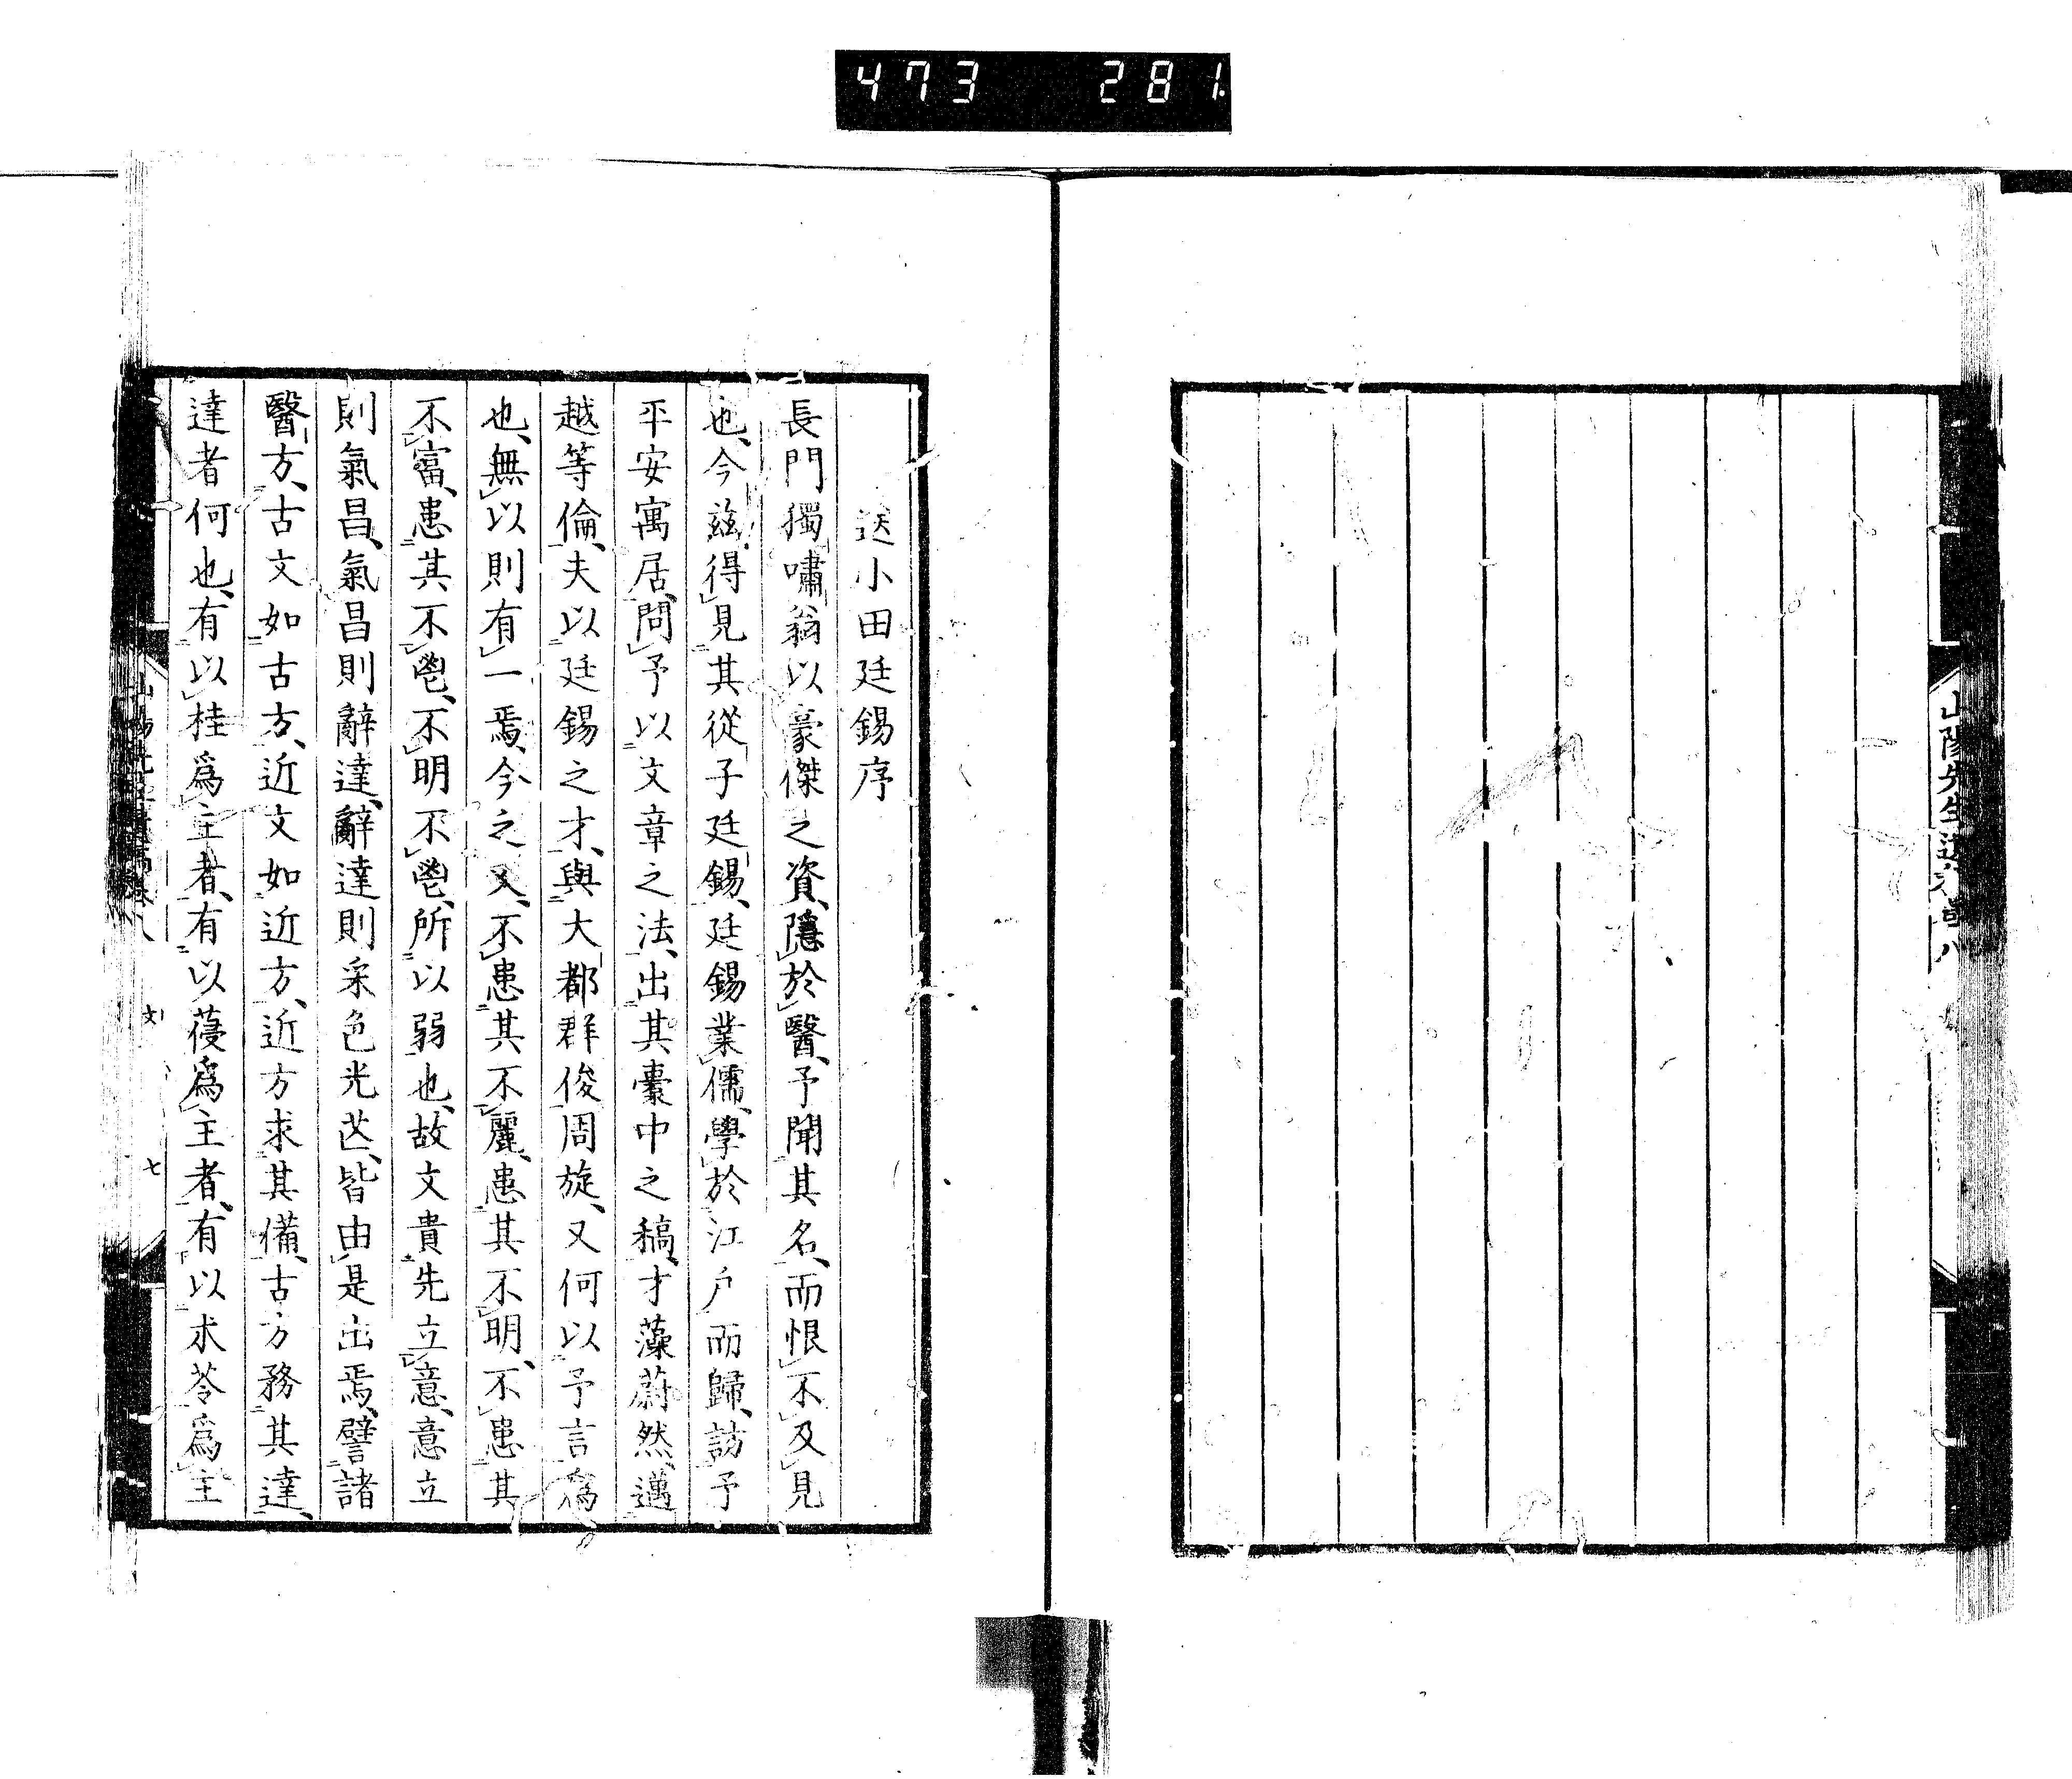 473 281
山陽先生遺稿 八
送小田廷錫序
長門獨嘯翁以豪傑之資、隱於醫、予聞其名、而恨不及見
也、今茲得見其從子廷錫、廷錫業儒、學於江戶而歸、訪予
平安寓居、問予以文章之法、出其囊中之稿、才藻蔚然、邁
越等倫、夫以廷錫之才、與大都群俊周旋、又何以予言爲
也、無以則有一焉、今之文、不患其不麗、患其不明、不患其
不富、患其不鬯、不明不鬯、所以弱也、故文貴先立意、意立
則氣昌、氣昌則辭達、辭達則采色光芒、皆由是出焉、譬諸
醫方、古文如古方、近文如近方、近方求其備、古方務其達、
達者何也、有以桂爲主者、有以葠爲主者、有以朮苓爲主
山陽先生遺稿卷八 文 七